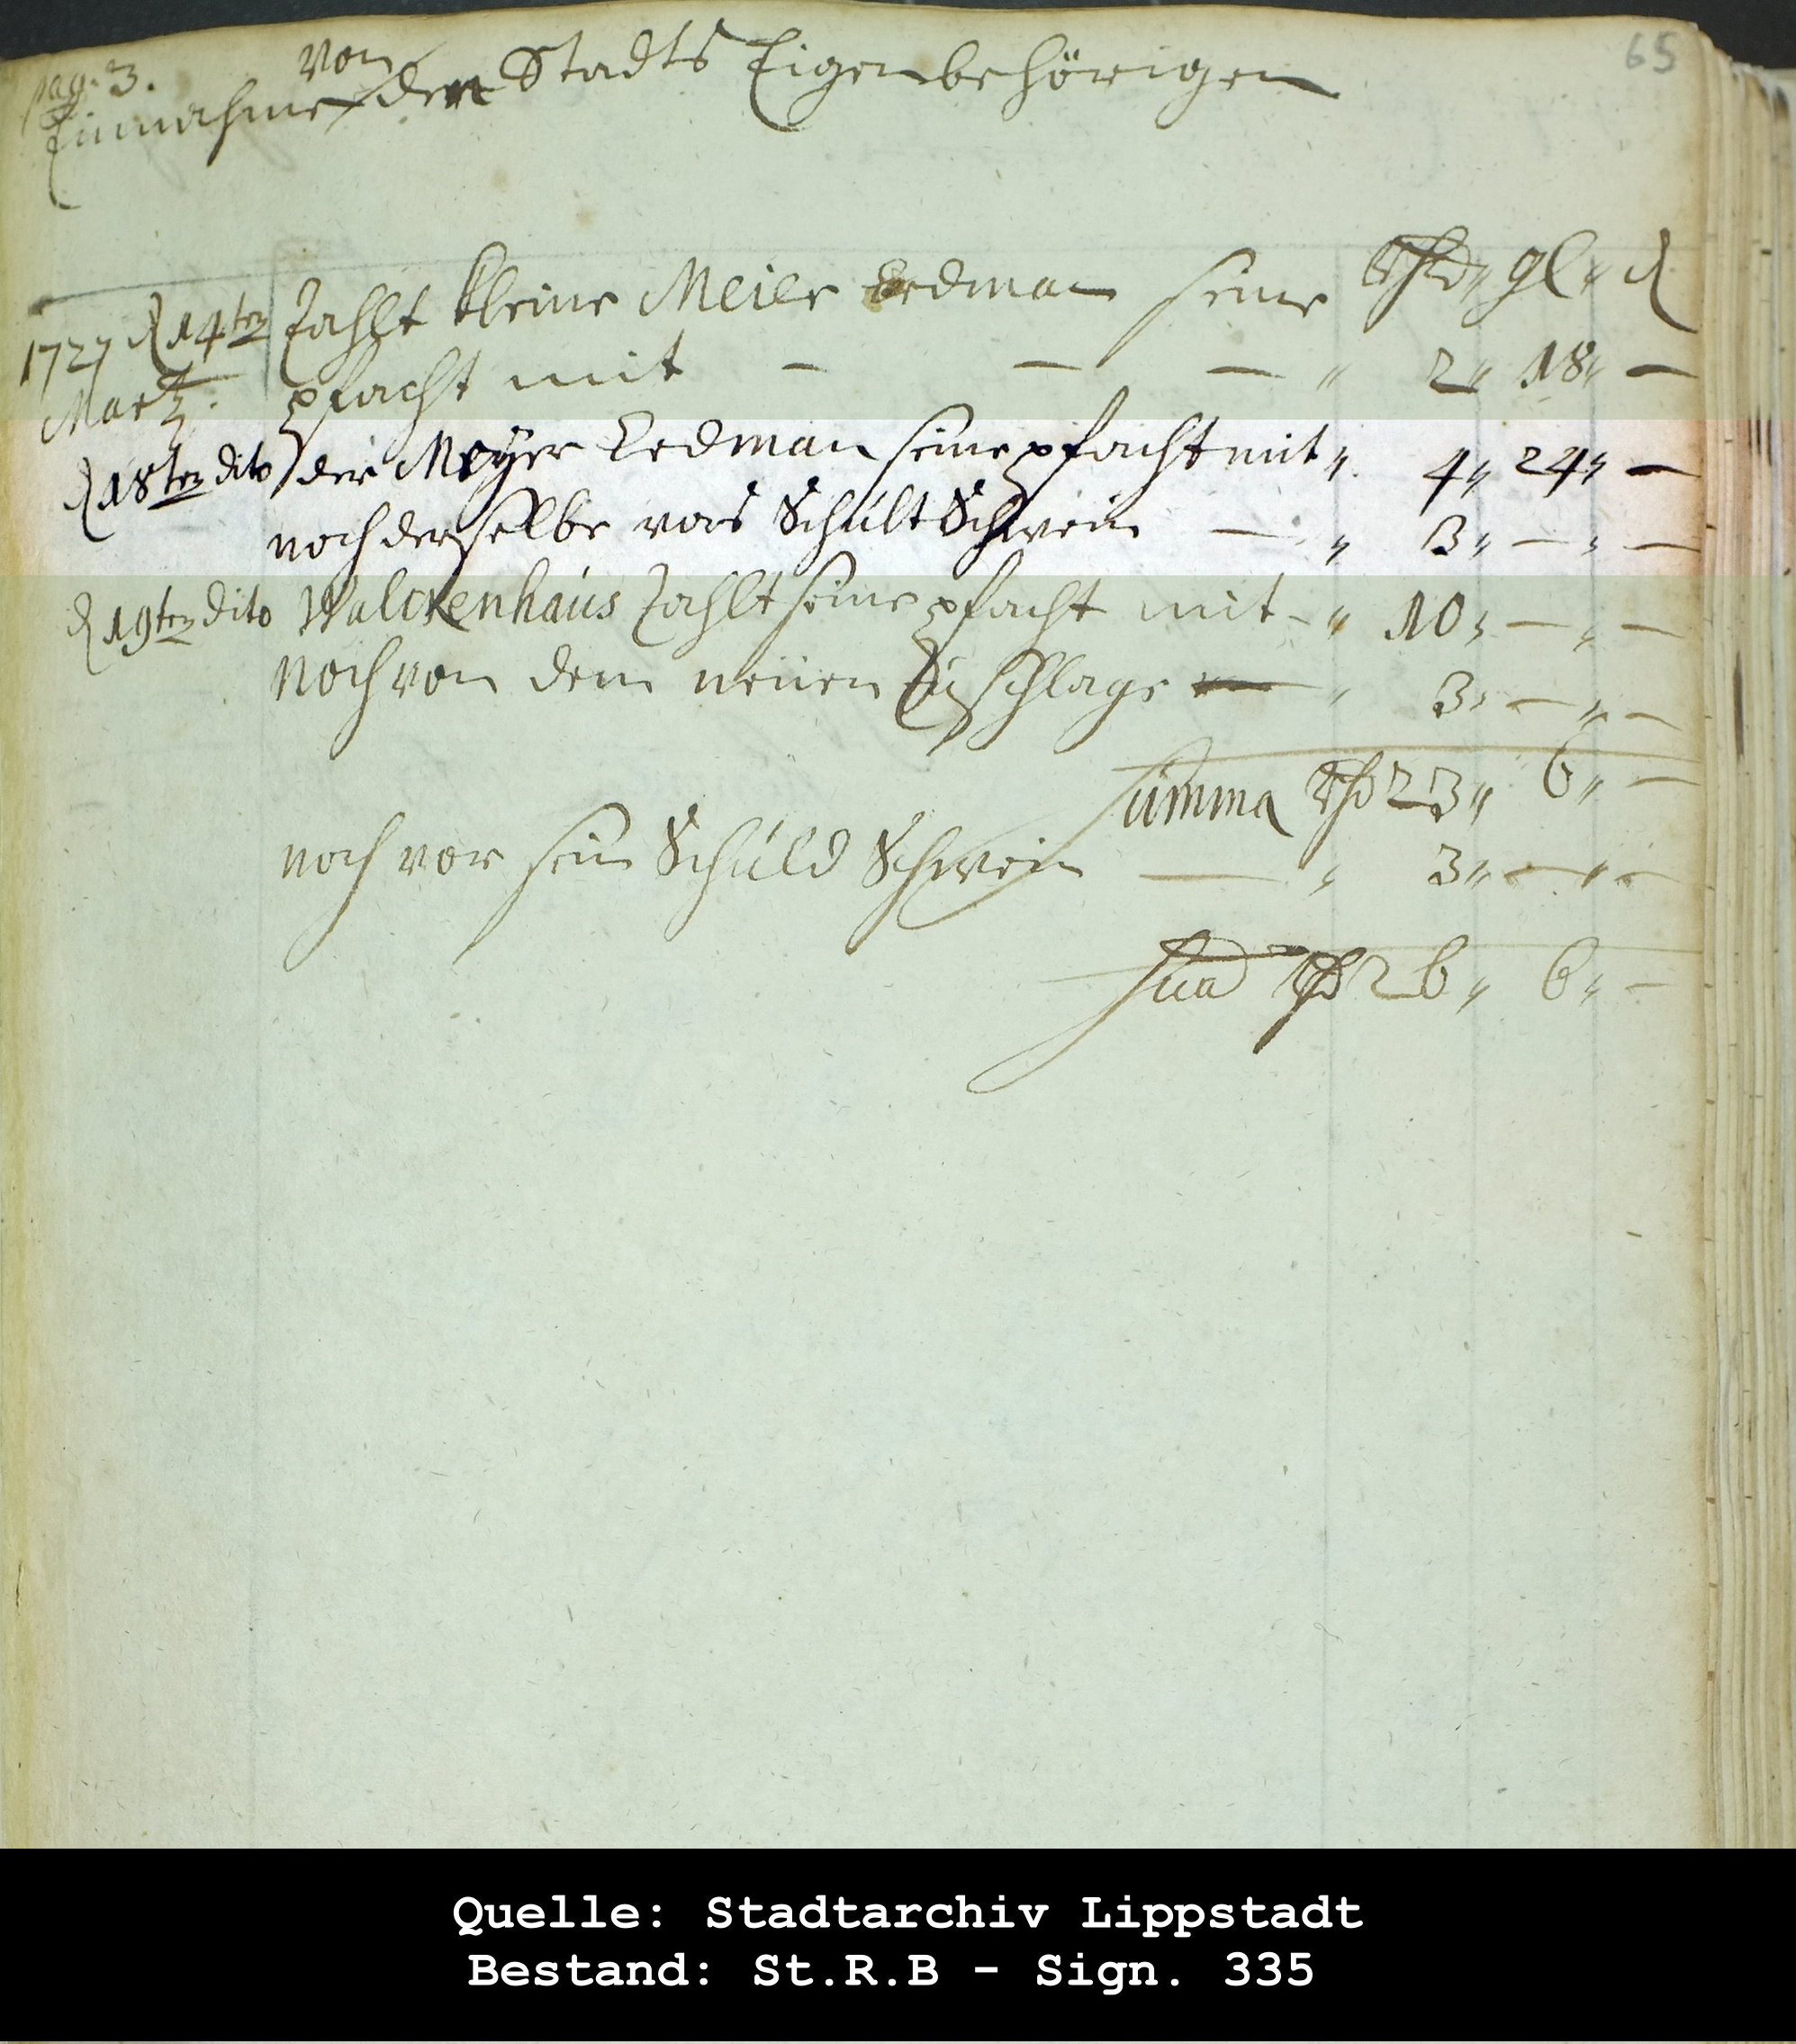 pag. 3.
65
Einnahme von den Stadts Eigenbehörigen
Thlr gl d
1727 d 14ten Zahlt kleine Meier Erdman seine
Martz. pfacht mit — — — " 2" 18" —
d 18ten dito der Meyer Erdman seine pfacht mit " 4" 24" —
noch derselbe vors Schult Schwein — " 3" — " —
d 19ten dito Walckenhaus Zahlt seine pfacht mit - " 10" — " —
Noch von dem neuen Zuschlage — " 3" — " —
Summa Thlr 23" 6" —
noch vor sein Schuld Schwein — " 3" — " —
Thlr 26" 6" —
Quelle: Stadtarchiv Lippstadt
Bestand: St.R.B - Sign. 335